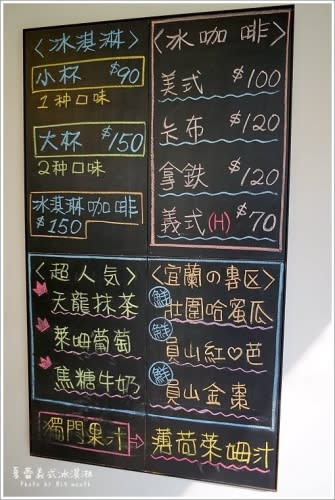 <冰淇淋>
小杯 $90
1种口味
大杯 $150
2种口味
冰淇淋咖啡
$150
<冰咖啡>
美式 $100
卡布 $120
拿鉄 $120
義式(H) $70
<超人気>
天龍抹茶
萊姆葡萄
焦糖牛奶
<宜蘭の專区>
鮮 壯圍哈蜜瓜
鮮 員山紅♡芭
鮮 員山金棗
獨門果汁→薄荷萊姆汁
義式冰淇淋